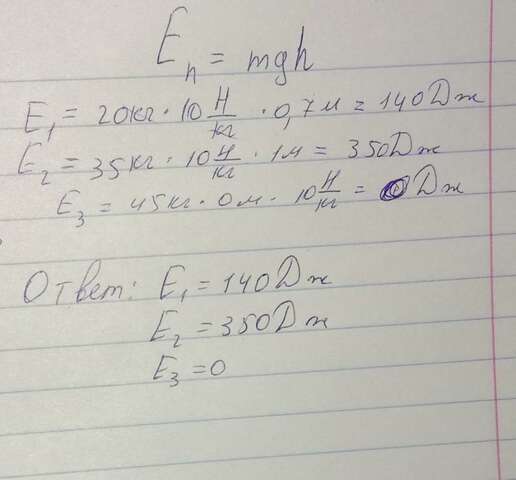 Eп = mgh
E₁ = 20кг · 10 Н/кг · 0,7м = 140Дж
E₂ = 35кг · 10 Н/кг · 1м = 350Дж
E₃ = 45кг · 0м · 10 Н/кг = 0Дж
Ответ: E₁ = 140Дж
E₂ = 350Дж
E₃ = 0